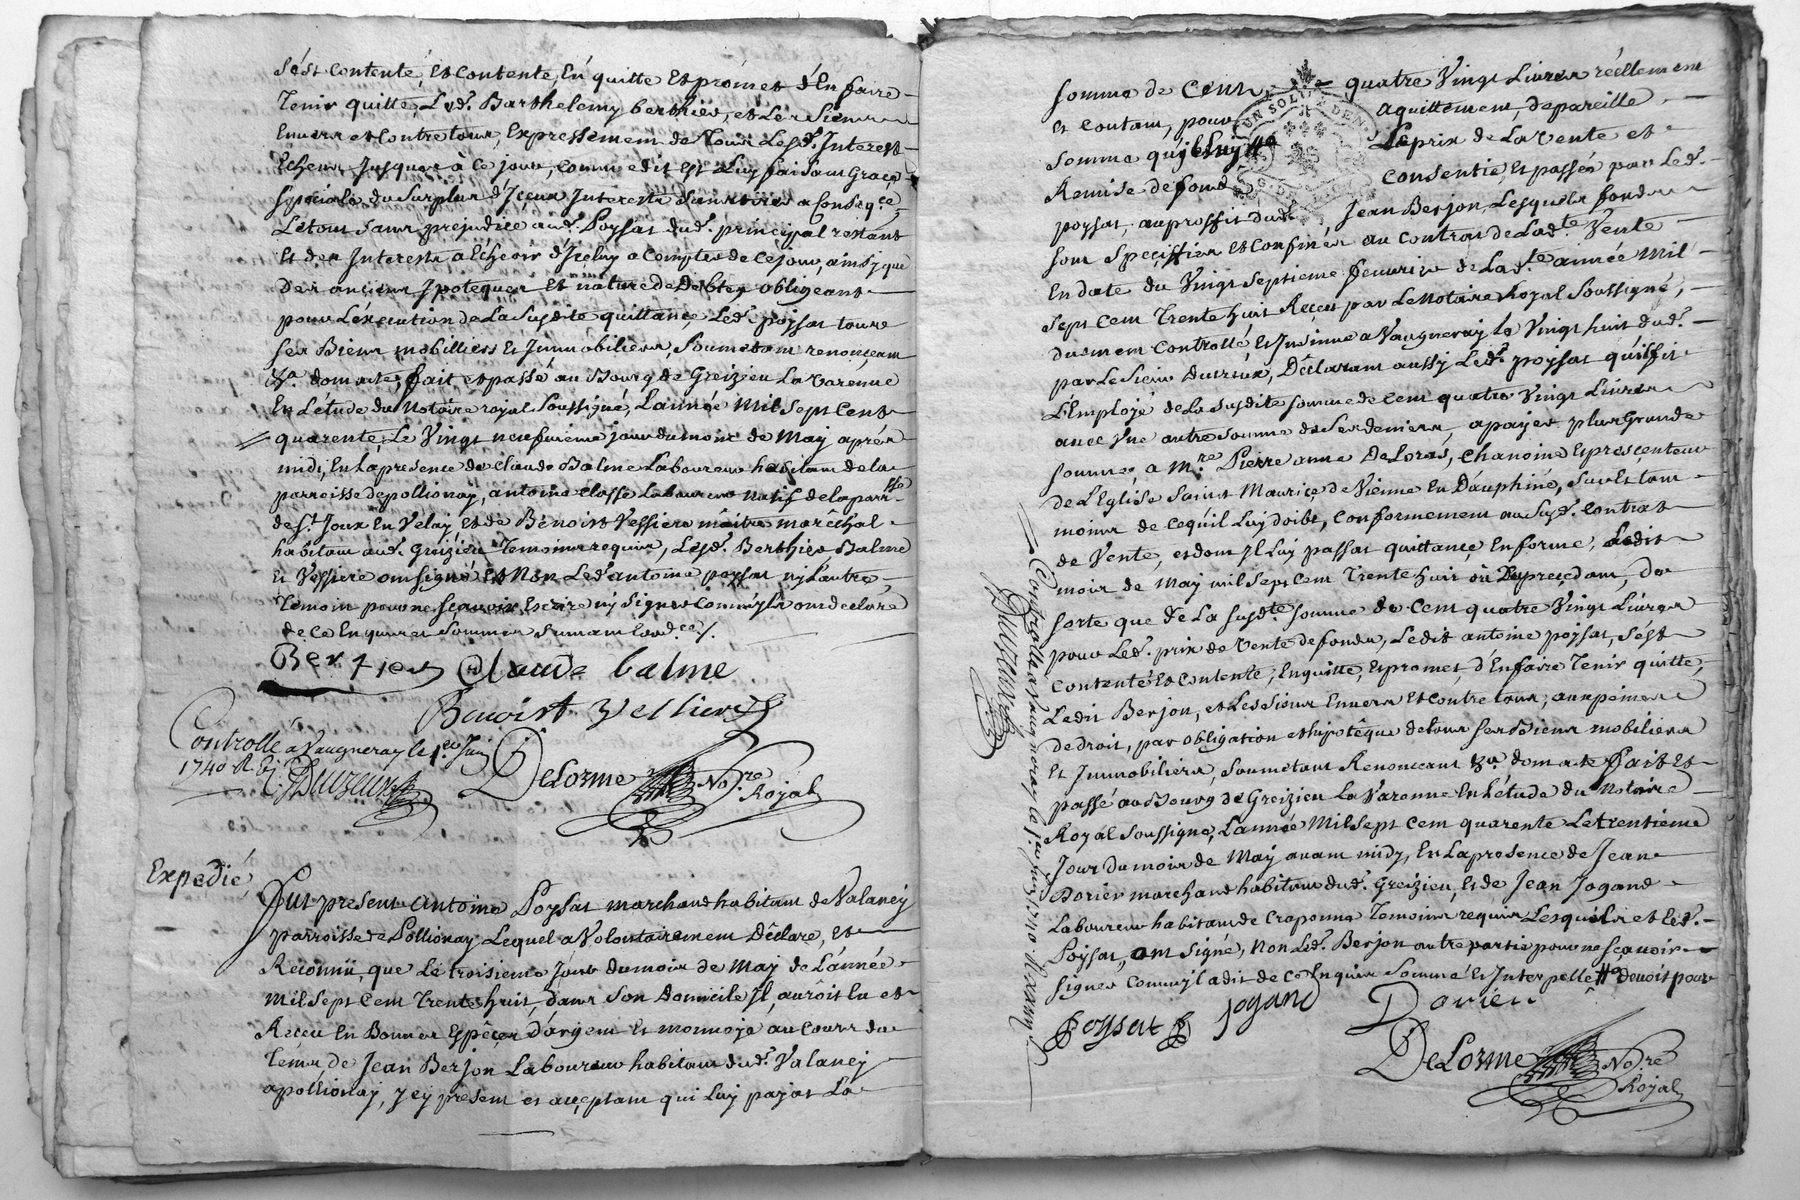 s'est contenté, et contente, En quitte Et promet d'En faire
Tenir quitte, Led.t Barthelemy berthier, et Les Siens
Envers et Contre tous, Expressement de Tous Lesd.ts Interest
Echeus Jusques à ce jour, comme dit est Luy faisant Grace
speciale du Surplus d'Iceux Interests Sans tirer a Conseq.ce,
Le tout Sans prejudice aud.t Poysat dud.t principal restant
Et des Interests a Echeoir d'Iceluy a Compter de Ce jour, ainsy que
Des anciens Ipoteques Et nature de Debte, obligeant
pour L'execution de La Susdite quittance, Led.t poysat tous
ses Biens mobilliers Et Immobiliers, Soumetant renonçeant
X.a dont acte, fait, et passé au Bourg de Greizieu La Varenne
En L'étude du Notaire royal Soussigné, L'année Mil Sept Cent
quarente, Le Vingt neufvieme jour du mois de May après
midi, En La presence de Claude Balme Laboureur habitant de La
parroisse de pollionay, antoine Classe Laboureur natif de la parr.sse
de S.t Joux En Velay, et de Benoist Vessiere maître marêchal
habitant aud.t Greizieu Temoins requis, Lesd.ts Berthier Balme
Et Vessiere ont signé Et Non Led.t antoine poysat ny L'autre
Temoin pour ne sçavoir Escrire ny Signer comm'ils ont declaré
de ce Enquis et Sommés
Berthier Claude balme
Benoist Vessiere
Controllé à Vaugneray le 1.er Juin
1740
DeLorme No.re
Royal
Expedié,
Fut present Antoine Poysat marchand habitant de Valaney
parroisse de Pollionay, Lequel a Volontairement Déclaré, et
Reconnu, que Le troisieme jour du mois de May de L'année
Mil Sept Cent Trente huit, dans Son Domicile Il, auroit lu et
Reçeu En Bonnes Espêces d'argent Et monnoye au Cours du
Tems de Jean Berjon Laboureur habitant dud.t Valaney
a pollionay, Icy present et acceptant qui Luy payat La
Somme de Cent quatre Vingt Livres réellement
Et Contant, pour aquittement, de pareille
Somme qu'il Luy Leprix de La Vente et
Remise de fonds Consentie Et passée par Led.t
poysat, au proffit dud.t Jean Berjon, Lesquels fonds
sont specifiés et Confinés au Contrat de Lad.te Vente
En date du Vingt Septieme fevrier de Lad.te année Mil
Sept Cent Trente huit Reçeu par Le Notaire Royal Soussigné,
duement Controllé, Et Insinué a Vaugneray Le Vingt huit dud.t
par Le Sieur Duzeux, Déclarant aussy Led.t poysat qu'il fit
L'Employe de La Susdite Somme de Cent quatre Vingt Livres
avec Une autre Somme de Ses deniers, a payer plus Grande
Somme, a M.re Pierre anne DeLoras, Chanoine Et presçenteur
de L'Eglise Saint Maurice de Vienne En Dauphiné, Sur Et tant
moins de Cequ'il Luy doibt, Conformement au Susd.t Contrat
de Vente, et dont Il Luy passat quittance En forme, Ledit
mois de May mil Sept Cent Trente huit où Le presçedant, de
sorte que de La Susd.te Somme de Cent quatre Vingt Livres
pour Led.t prix de Vente de fonds, Ledit antoine poysat, s'est
Contenté et Contente, En quitte, Et promet, d'En faire Tenir quitte,
Ledit Berjon, et Les Siens Envers Et Contre tous, aux peines
de droit, par obligation et hipotêque de tous ses Biens mobiliers
Et Immobiliers, Soumetant Renonceant X.a dont acte fait Et
passé au Bourg de Greizieu La Varenne En L'étude du Notaire
Royal Soussigné, L'année Mil Sept Cent quarente Le trentieme
Jour du mois de May avant midy, En La presence de Jean
Dorier marchand habitant dud.t Greizieu, Et de Jean Jogand
Laboureur habitant de Craponne Temoins requis Lesquels et Led.t
Poysat, ont Signé, Non Led.t Berjon autre partie pour ne sçavoir
Signer Comm'il a dit de Ce Enquis Sommé Et Interpellé # devoit pour
Poysat Jogand Dorier
DeLorme No.re
Royal
Controllé a Vaugneray Le 1.er Juin 1740